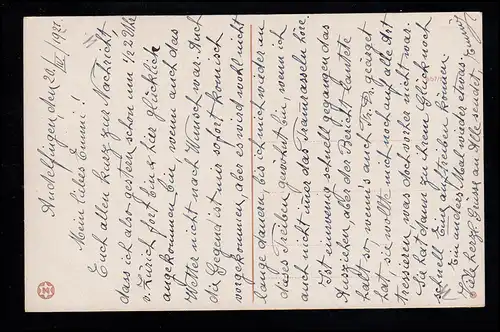 Andelfingen, den 20. III. 1921.
Mein liebes Emmi!
Euch allen kurz zur Nachricht
dass ich also gestern schon um 1/2 2 Uhr
v. Zürich fort bin & hier glücklich
angekommen bin, wenn auch das
Wetter nicht nach Wunsch war. Auch
die Gegend ist mir sofort komisch
vorgekommen, aber es wird wohl nicht
lange dauern, bis ich mich wieder an
dieses Treiben gewohnt bin, wenn ich
auch nicht immer das Tramrasseln höre.
Ist ein wenig schnell gegangen das
Ausziehen, aber der Bericht lautete
halt so wenn's auch Fr. Dr. geärget
hat, sie wollte mich noch auf alle Art
tressieren, was doch vorher nicht war.
Sie hat dann zu ihrem Glück noch
schnell Eine auftreiben können
Ein anders Mal wieder etwas.
Viele herzl. Grüsse an Alle sendet